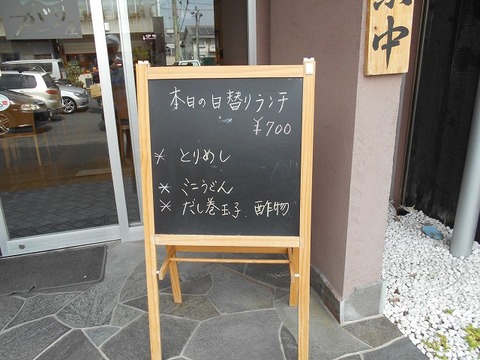 本日の日替りランチ
¥700
* とりめし
* ミニうどん
* だし巻玉子、酢物
中